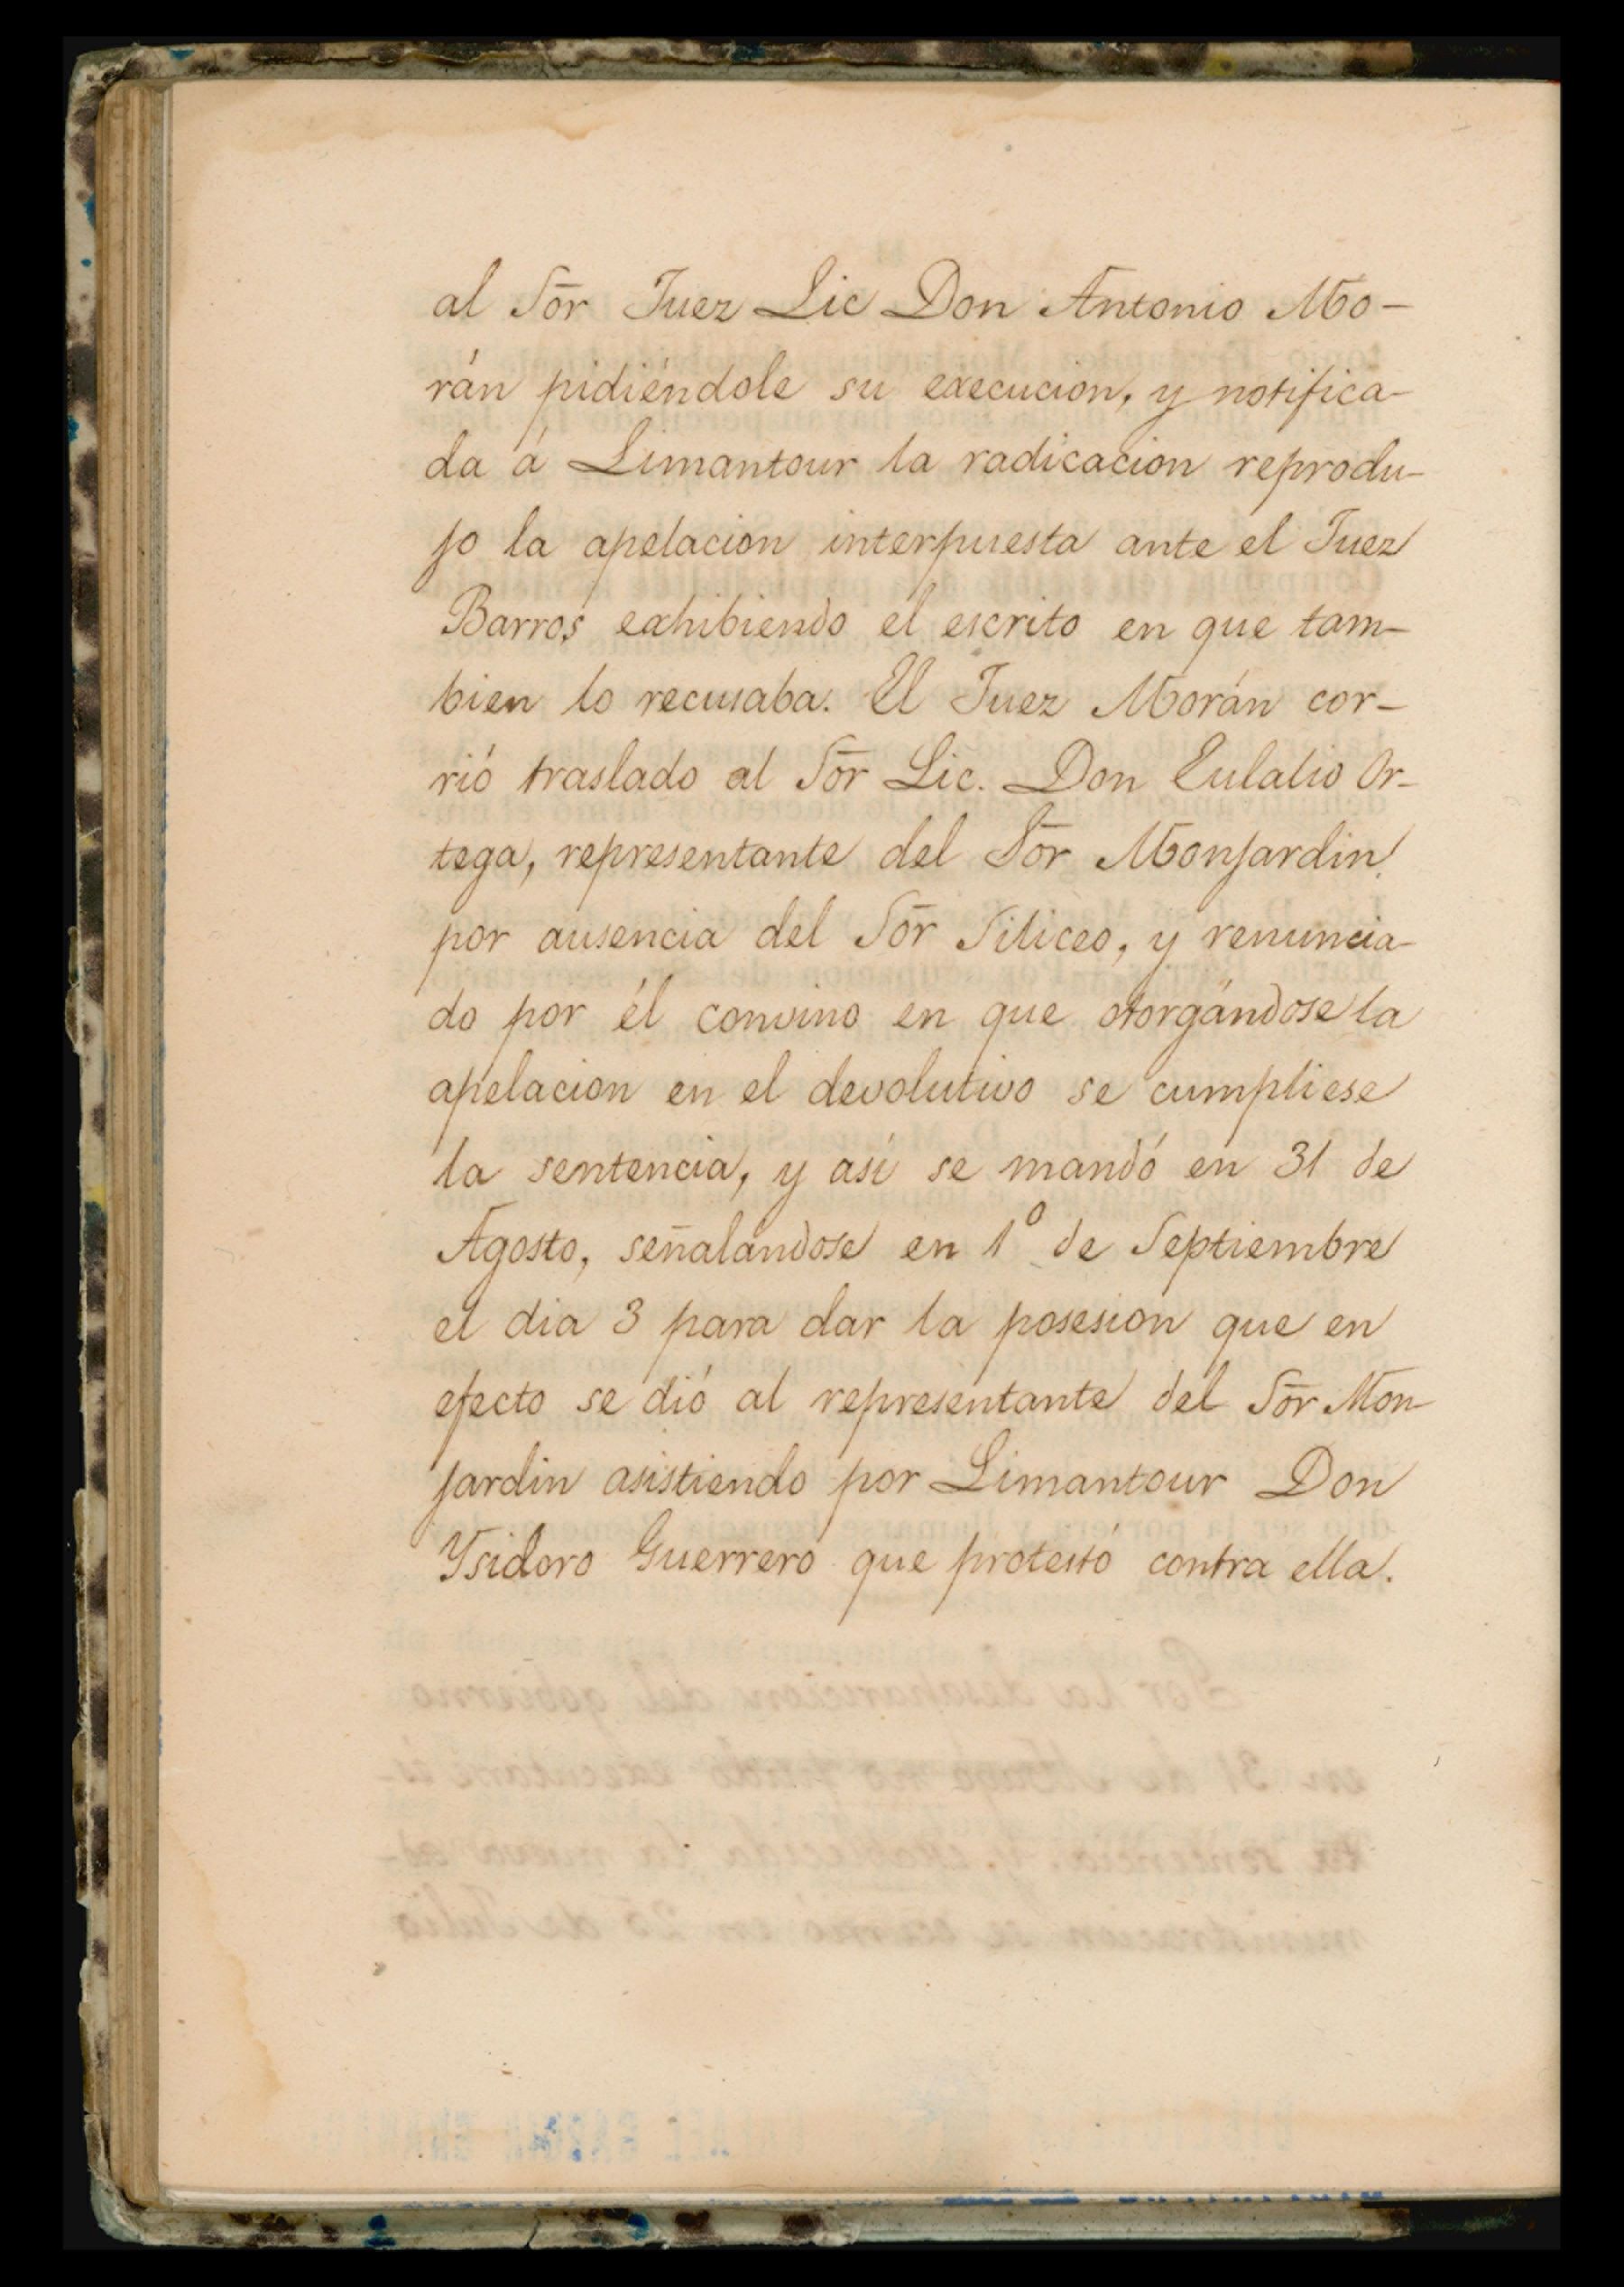 al Sōr Juez Lic Don Antonio Mo-
rán pidiéndole su execucion, y notifica-
da á Limantour la radicacion reprodu-
jo la apelacion interpuesta ante el Juez
Barros exhibiendo el escrito en que tam-
bien lo recusaba. El Juez Morán cor-
rió traslado al Sōr Lic. Don Eulalio Or-
tega, representante del Sōr Monjardin
por ausencia del Sōr Siliceo, y renuncia-
do por él convino en que otorgándose la
apelacion en el devolutivo se cumpliese
la sentencia, y así se mandó en 31 de
Agosto, señalandose en 1º de Septiembre
el dia 3 para dar la posesion que en
efecto se dió al representante del Sōr Mon-
jardin asistiendo por Limantour Don
Ysidoro Guerrero que protestó contra ella.